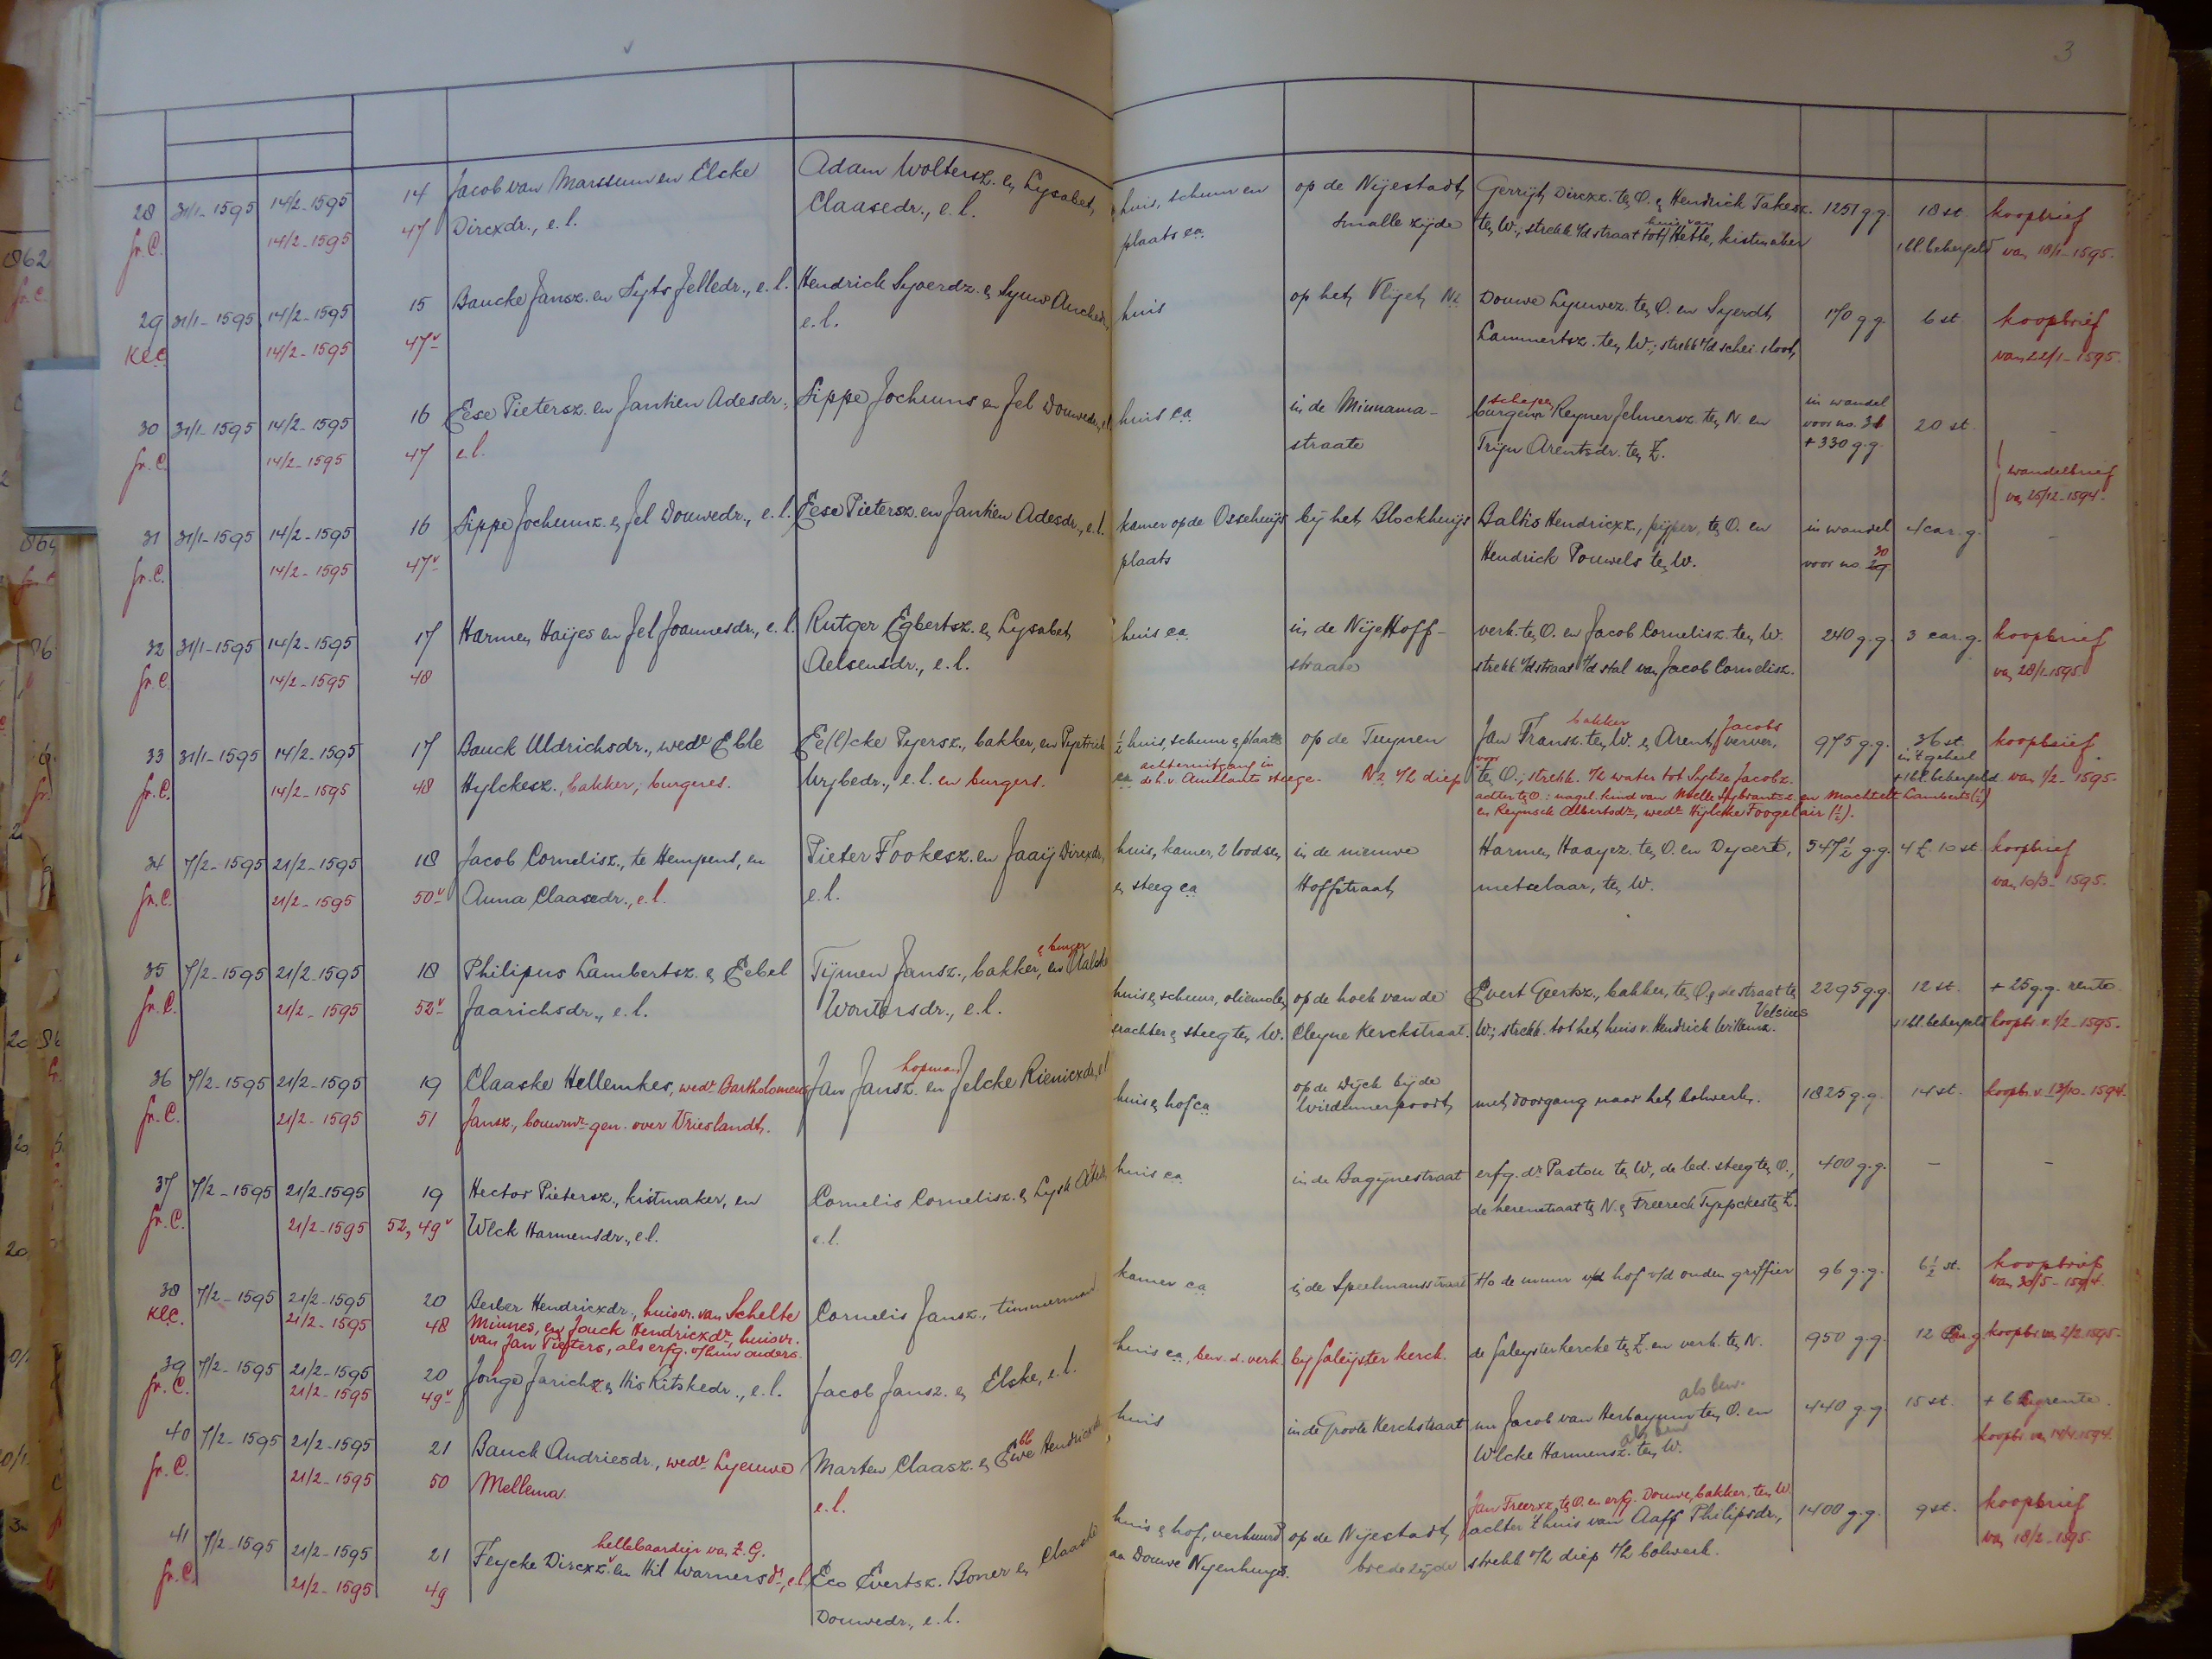 3
28 31/1-1595 14/2-1595 14 Jacob van Marssum en Elske Adam Woltersz. en Lysabet huis, schuur en op de Nijestadt, Gerrijt Dircxz. ten O. en Hendrick Takesz. 1251 g.g. 18 st. koopbrief
fr.C. 14/2-1595 47 Dircxdr., e.l. Claasedr., e.l. plaats ca. smalle zijde ten W.; strekk v/d straat tot huis van Hette, kistmaker 1 bl. behergeld van 18/1-1595.
29 31/1-1595 14/2-1595 15 Baucke Jansz. en Syts Jelledr., e.l. Hendrick Syoerdz. en Sjuw huis op het Vlijet Nz Douwe Lyuwez. ten O. en Syerdt 170 g.g. 6 st. koopbrief
KLC. 14/2-1595 47v e.l. Lammertsz. ten W.; strekk t/d schei. sloot, van 22/1-1595.
30 31/1-1595 14/2-1595 16 Eese Pietersz. en Jantien Adesdr., Sippe Jochums en Jel Douwedr., e.l. huis ca in de Minnama- schepen burgem Reyner Jelmersz. ten N. en in wandel voor no. 31 20 st. -
fr.C. 14/2-1595 47 e.l. straate Trijn Arentsdr. ten Z. + 330 g.g.
wandelbrief
van 25/12-1594.
31 31/1-1595 14/2-1595 16 Sippe Jochumz. en Jel Douwedr., e.l. Eese Pietersz. en Jantien Adesdr., e.l. kamer op de Osseheuijs bij het Blockhuijs Baltis Hendricxz., pijper, ten O. en in wandel 4 car. g. -
fr.C. 14/2-1595 47v plaats Hendrick Pouwels ten W. voor no 30 29
32 31/1-1595 14/2-1595 17 Harmen Haijes en Jel Joannesdr., e.l. Rutger Egbertsz. en Lysabet huis ca in de Nije Hoff- verk. ten O. en Jacob Cornelisz. ten W. 240 g.g. 3 car. g. koopbrief
fr.C. 14/2-1595 48 Aelsensdr., e.l. straate strekk v/d straat t/d stal van Jacob Cornelisz. van 28/1-1595.
33 31/1-1595 14/2-1595 17 Bauck Uldrichsdr., wedr Eble Ee(l)cke Pyersz., bakker, en ½ huis, schuur en plaats op de Tuynen Jan Fransz. bakker ten W. en Arent Jacobs verver, 975 g.g. 36 st. in 't geheel koopbrief
fr.C. 14/2-1595 48 Hylckesz., bakker, burgeres. Wybedr., e.l. en burgers. ca achteruitgang in de h.v. Amelants steege. Nz. t/h diep voor ten O.; strekk. t/h water tot Sytze Jacobz. + 1 bl. behergeld van 1/2-1595.
achter te O: nagel. kind van Melle Sybrantsz. en Machtelt Lamberts (½)
en Reynsck Albertsdr, wedr Hylcke Foogelair (½).
34 7/2-1595 21/2-1595 18 Jacob Cornelisz., te Hempens, en Pieter Fookesz. en Jaaij Dircxdr., huis, kamer, 2 loodsen in de nieuwe Harmen Haayez. ten O. en Dyoert, 547½ g.g. 4 £ 10 st koopbrief
fr.C. 21/2-1595 50v Anna Claasedr., e.l. e.l. en steeg ca Hoffstraat, metselaar, ten W. van 10/3-1595.
35 7/2-1595 21/2-1595 18 Philipus Lambertsz. en Eebel Tijmen Jansz., bakker, en burger en Aalcke huis en schuur, oliemolen op de hoek van de Evert Geertsz., bakker, ten O. en de straat ten 2295 g.g. 12 st. + 25 g.g. rente
fr.C. 21/2-1595 52v Jaarichsdr., e.l. Woutersdr., e.l. erachter en steeg ten W. Cleyne Kerckstraat. W.; strekk. tot het huis v. Hendrick Willemsz. Velsius 1 bl. behergeld koopbr. v. 1/2-1595.
36 7/2-1595 21/2-1595 19 Claaske Hellemkes, wedr Bartholomeus Jan Jansz. hopman en Jelcke Rienicxdr., e.l. huis en hof ca op de Wijck bij de Wirdumerpoort, met doorgang naar het bolwerk. 1825 g.g. 14 st. koopbr. v. 13/10-1594.
fr.C. 21/2-1595 51 Jansz., bouwmr gen. over Vrieslandt.
37 7/2-1595 21/2-1595 19 Hector Pietersz., kistmaker, en Cornelis Cornelisz. en Lysk huis ca in de Bagijnestraat erfg. dr Pastou ten W., de led. steeg ten O., 400 g.g. - -
fr.C. 21/2-1595 52, 49v Wlck Harmensdr., e.l. e.l. de herenstraat te N. en Freerck Tyepckes te Z.
38 7/2-1595 21/2-1595 20 Berber Hendricxdr., huisvr. van Schelte Cornelis Jansz., timmerman kamer ca in de Speelmansstraat t/o de muur v/d hof v/d ouden griffier 96 g.g. 6½ st. koopbrief
KLC. 21/2-1595 48 Minnes, en Jouck Hendricxdr, huisvr. van 30/5-1594.
van Jan Pieters, als erfg. v/hun ouders.
39 7/2-1595 21/2-1595 20 Jonge Jarichz. en His Kitskedr., e.l. Jacob Jansz. en Elske, e.l. huis ca, bew. d. verk. bij Jaleijster kerck. de Jaleyster kercke te Z. en verk. te N. 950 g.g. 12 g. koopbr. van 2/2-1595.
fr.C. 21/2-1595 49v
40 7/2-1595 21/2-1595 21 Bauck Andriesdr., wedr Lyeuwe Marten Claasz. en huis in de Groote Kerckstraat nu Jacob van Herbayum als bew. ten O. en 440 g.g. 15 st. + 6 rente.
fr.C. 21/2-1595 50 Mellema. e.l. Wlcke Harmensz. ten W. koopbr. van 14/4-1594.
41 7/2-1595 21/2-1595 21 Feycke Dircxz. hellebaardier van Z.G. en Hil Warnersdr, e.l. Eco Evertsz. Boner en Claaske huis en hof, verhuurd op de Nijestadt, Jan Freerxz, te O. en erfg. Douwe, bakker, ten W. achter 't huis van Aaff Philipsdr., 1400 g.g. 9 st. koopbrief
fr.C. 21/2-1595 49 Douwedr., e.l. aa Douwe Nyenhuys. brede zijde strekk v/h diep t/h bolwerk. van 18/2-1595.